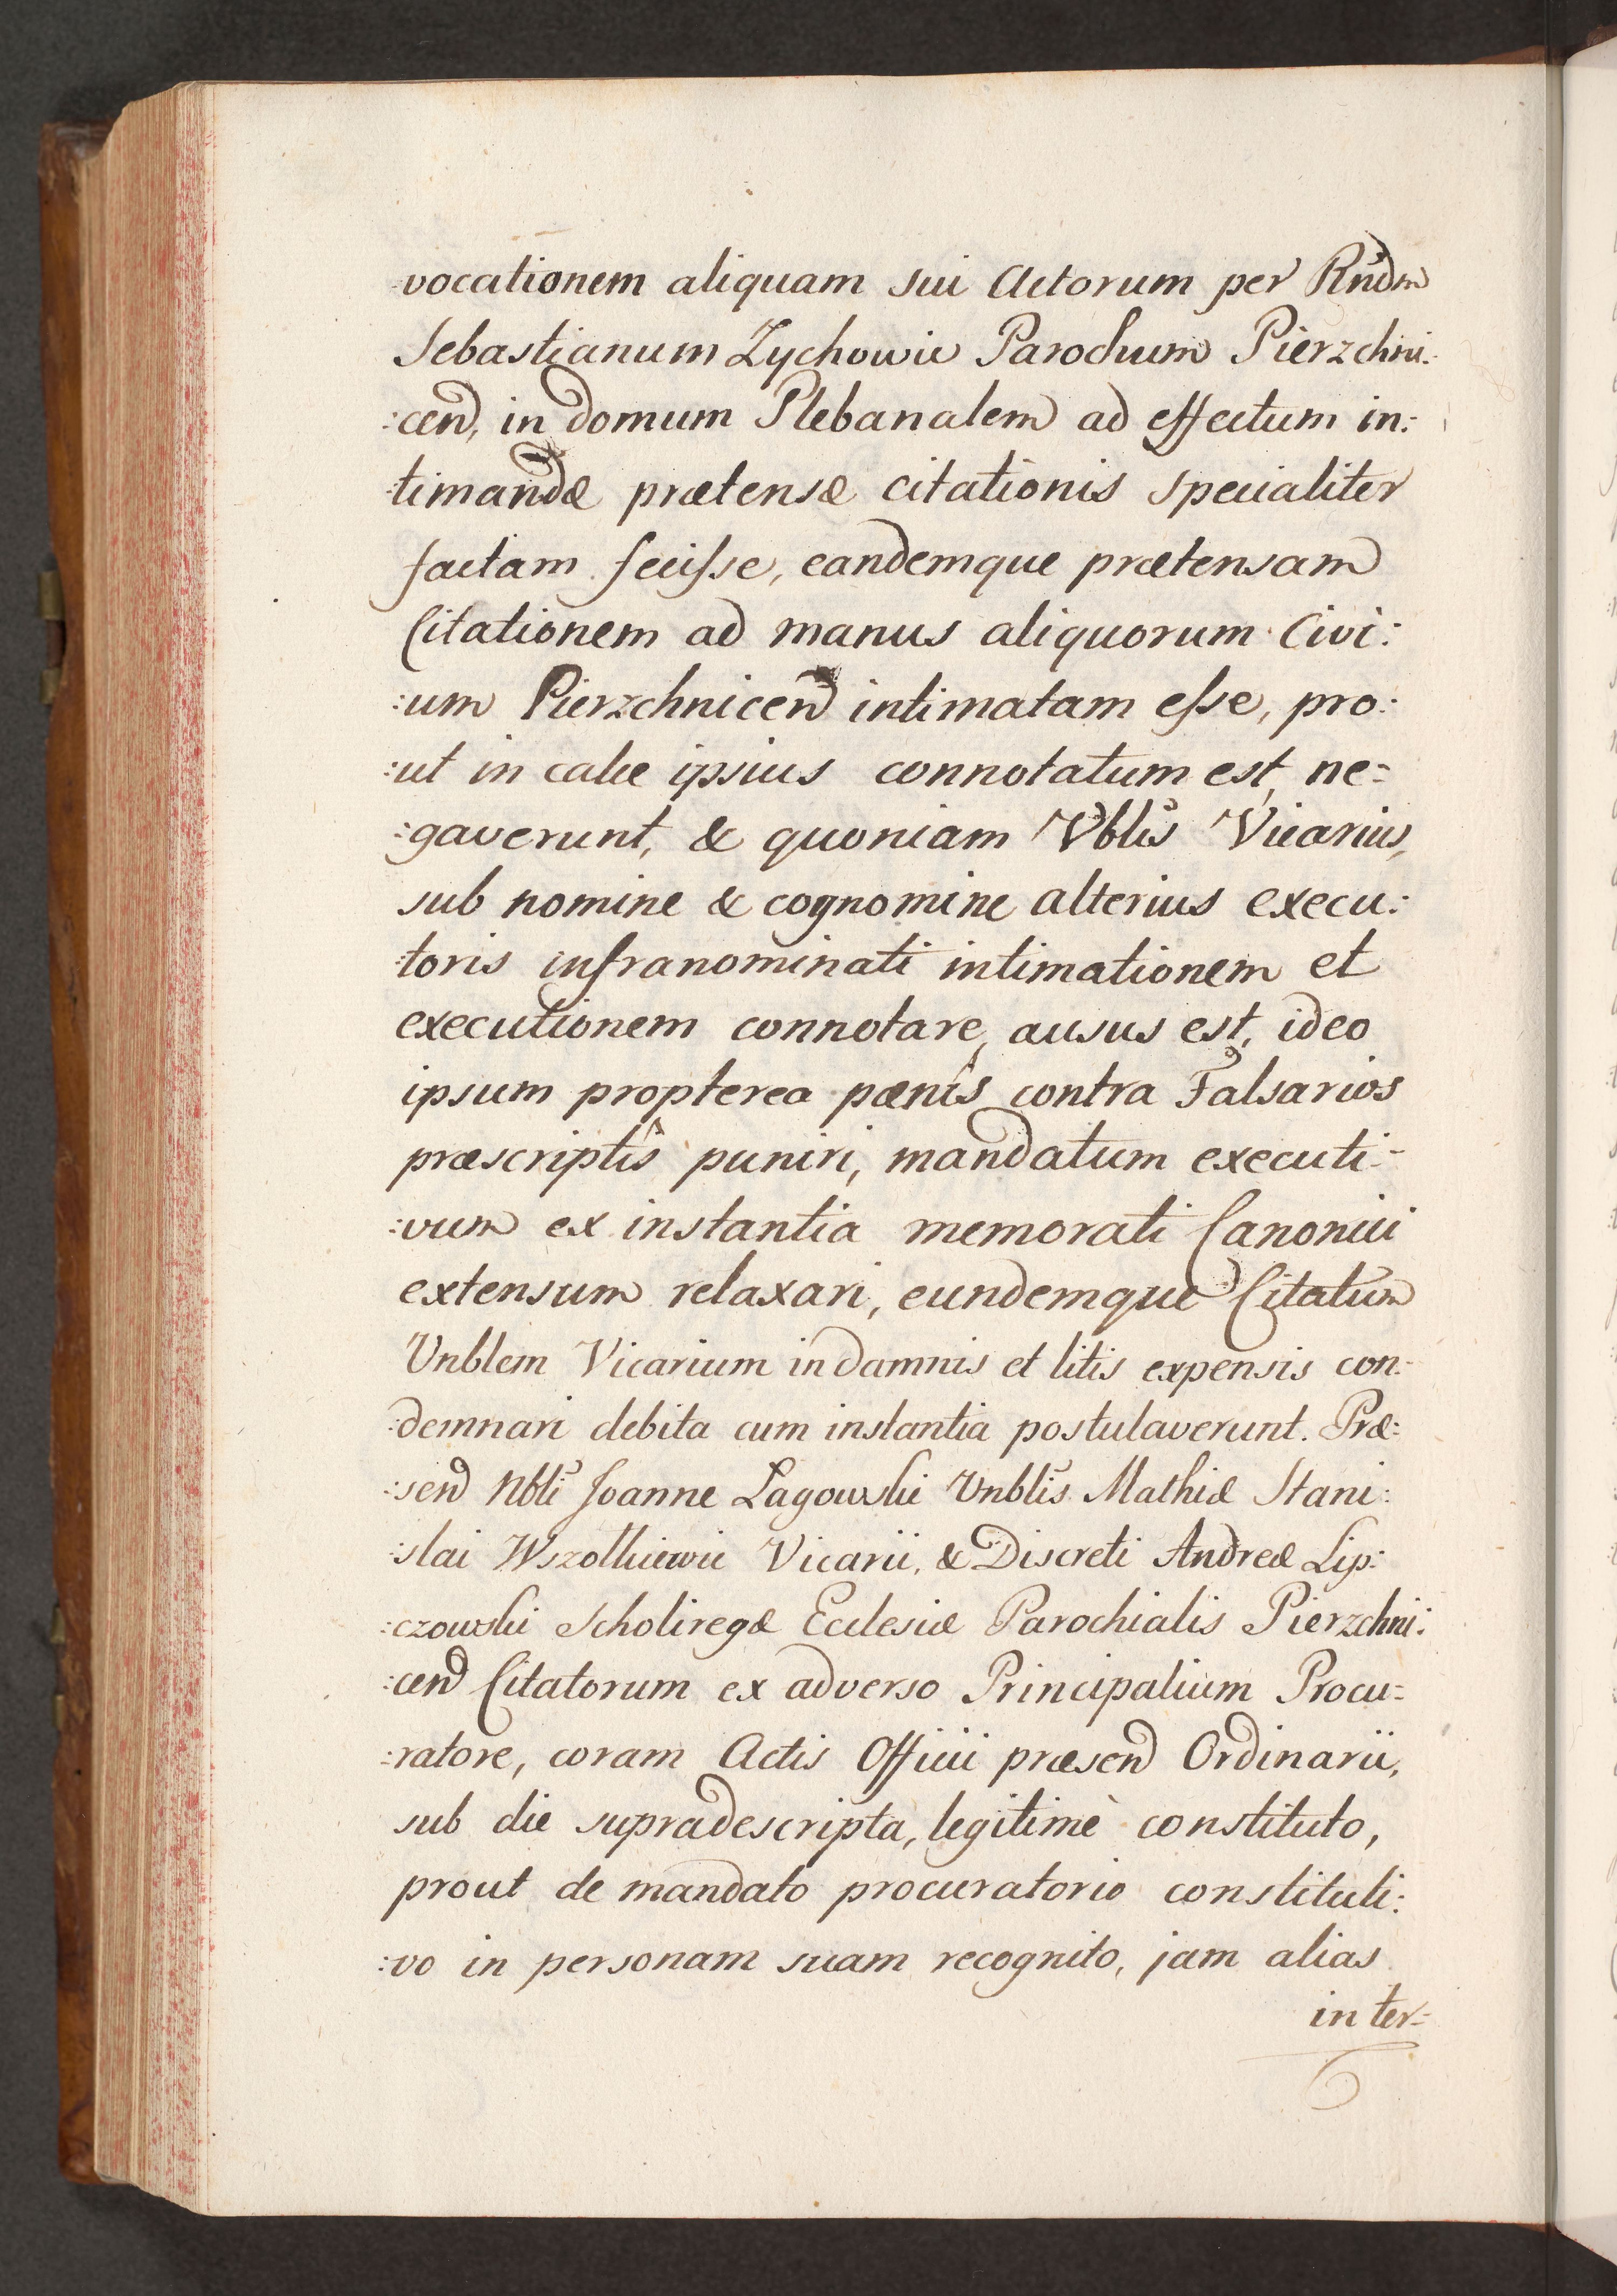 vocationem aliquam sui Actorum per Rndm
Sebastianum Zychowic Parochum Pierzchni:
:cen, in domum Plebanalem ad effectum in:
:timandæ prætensæ citationis specialiter
factam fecisse, eandemque prætensam
Citationem ad manus aliquorum Civi:
:um Pierzchnicen intimatam esse, pro:
:ut in calce ipsius connotatum est, ne=
:gaverunt, & quoniam Vblis Vicarius,
sub nomine & cognomine alterius execu:
:toris infranominati intimationem et
executionem connotare, ausus est, ideo
ipsum propterea pœnis contra Falsarios
præscriptis puniri, mandatum executi=
:vum ex instantia memorati Canonici
extensum relaxari, eundemque Citatum
Vnblem Vicarium in damnis et litis expensis con:
:demnari debita cum instantia postulaverunt. Præ:
:sen Nbli Joanne Lagowski Vnblis Mathiæ Stani:
:slai Wszolkiewic Vicarii, & Discreti Andreæ Lip:
:czowski Scholiregæ Ecclesiæ Parochialis Pierzchni:
:cen Citatorum ex adverso Principalium Procu=
:ratore, coram Actis Officii præsen Ordinarii,
sub die supradescripta, legitimè constituto,
prout de mandato procuratorio constituti:
:vo in personam suam recognito, jam alias
inter=